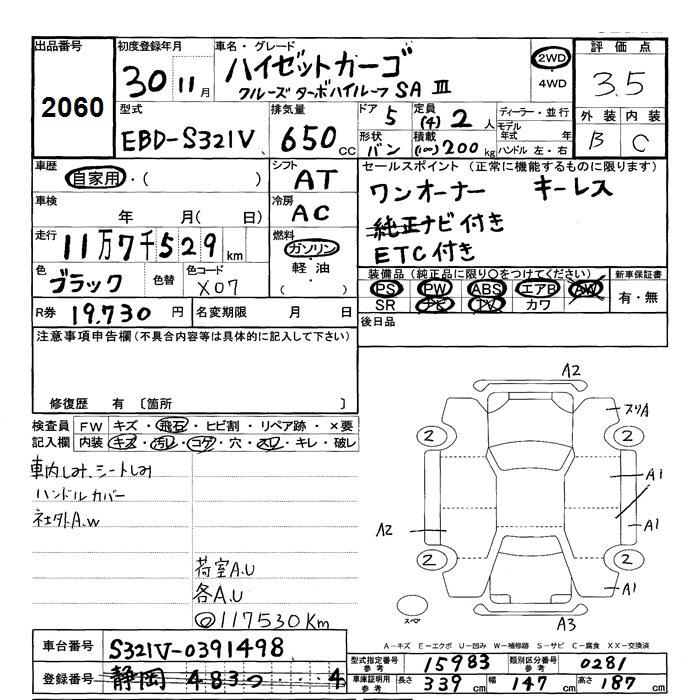 出品番号
2060
初度登録年月
30 11月
車名・グレード
ハイゼットカーゴ
クルーズターボハイルーフ SA Ⅲ
2WD
・
4WD
評価点
3.5
外装 内装
B C
型式
EBD-S321V
排気量
650 cc
ドア 5
形状 バン
定員 (4) 2 人
積載 (100) 200 kg
ディーラー・並行
モデル年式 年
ハンドル 左・右
車歴
自家用・( )
シフト
AT
車検
年 月( 日)
冷房
AC
走行
11万7千529 km
燃料
ガソリン
・
軽油
・
( )
色
ブラック
色替
色コード
X07
R券 19,730 円
名変期限 月 日
セールスポイント (正常に機能するものに限ります)
ワンオーナー キーレス
純正ナビ付き
ETC付き
装備品(純正品に限り○をつけてください)
PS PW ABS エアB AW
SR ナビ TV カワ
新車保証書
有・無
後日品
注意事項申告欄(不具合内容等は具体的に記入して下さい)
修復歴 有 〔箇所 〕
検査員記入欄
FW キズ・飛石・ヒビ割・リペア跡・×要
内装 キズ・汚レ・コゲ・穴・スレ・キレ・破レ
車内しみ、シートしみ
ハンドルカバー
社外A.W
荷室A.U
各A.U
◎117530Km
A2
2
2
A1
A1
A2
2
2
A1
A3
スペア
A-キズ E-エクボ U-凹み W-補修跡 S-サビ C-腐食 XX-交換済
車台番号 S321V-0391498
登録番号 静岡 483つ ・・・4
型式指定番号 参考 15983
類別区分番号 参考 0281
車庫証明用 参考 長さ 339 cm 幅 147 cm 高さ 187 cm